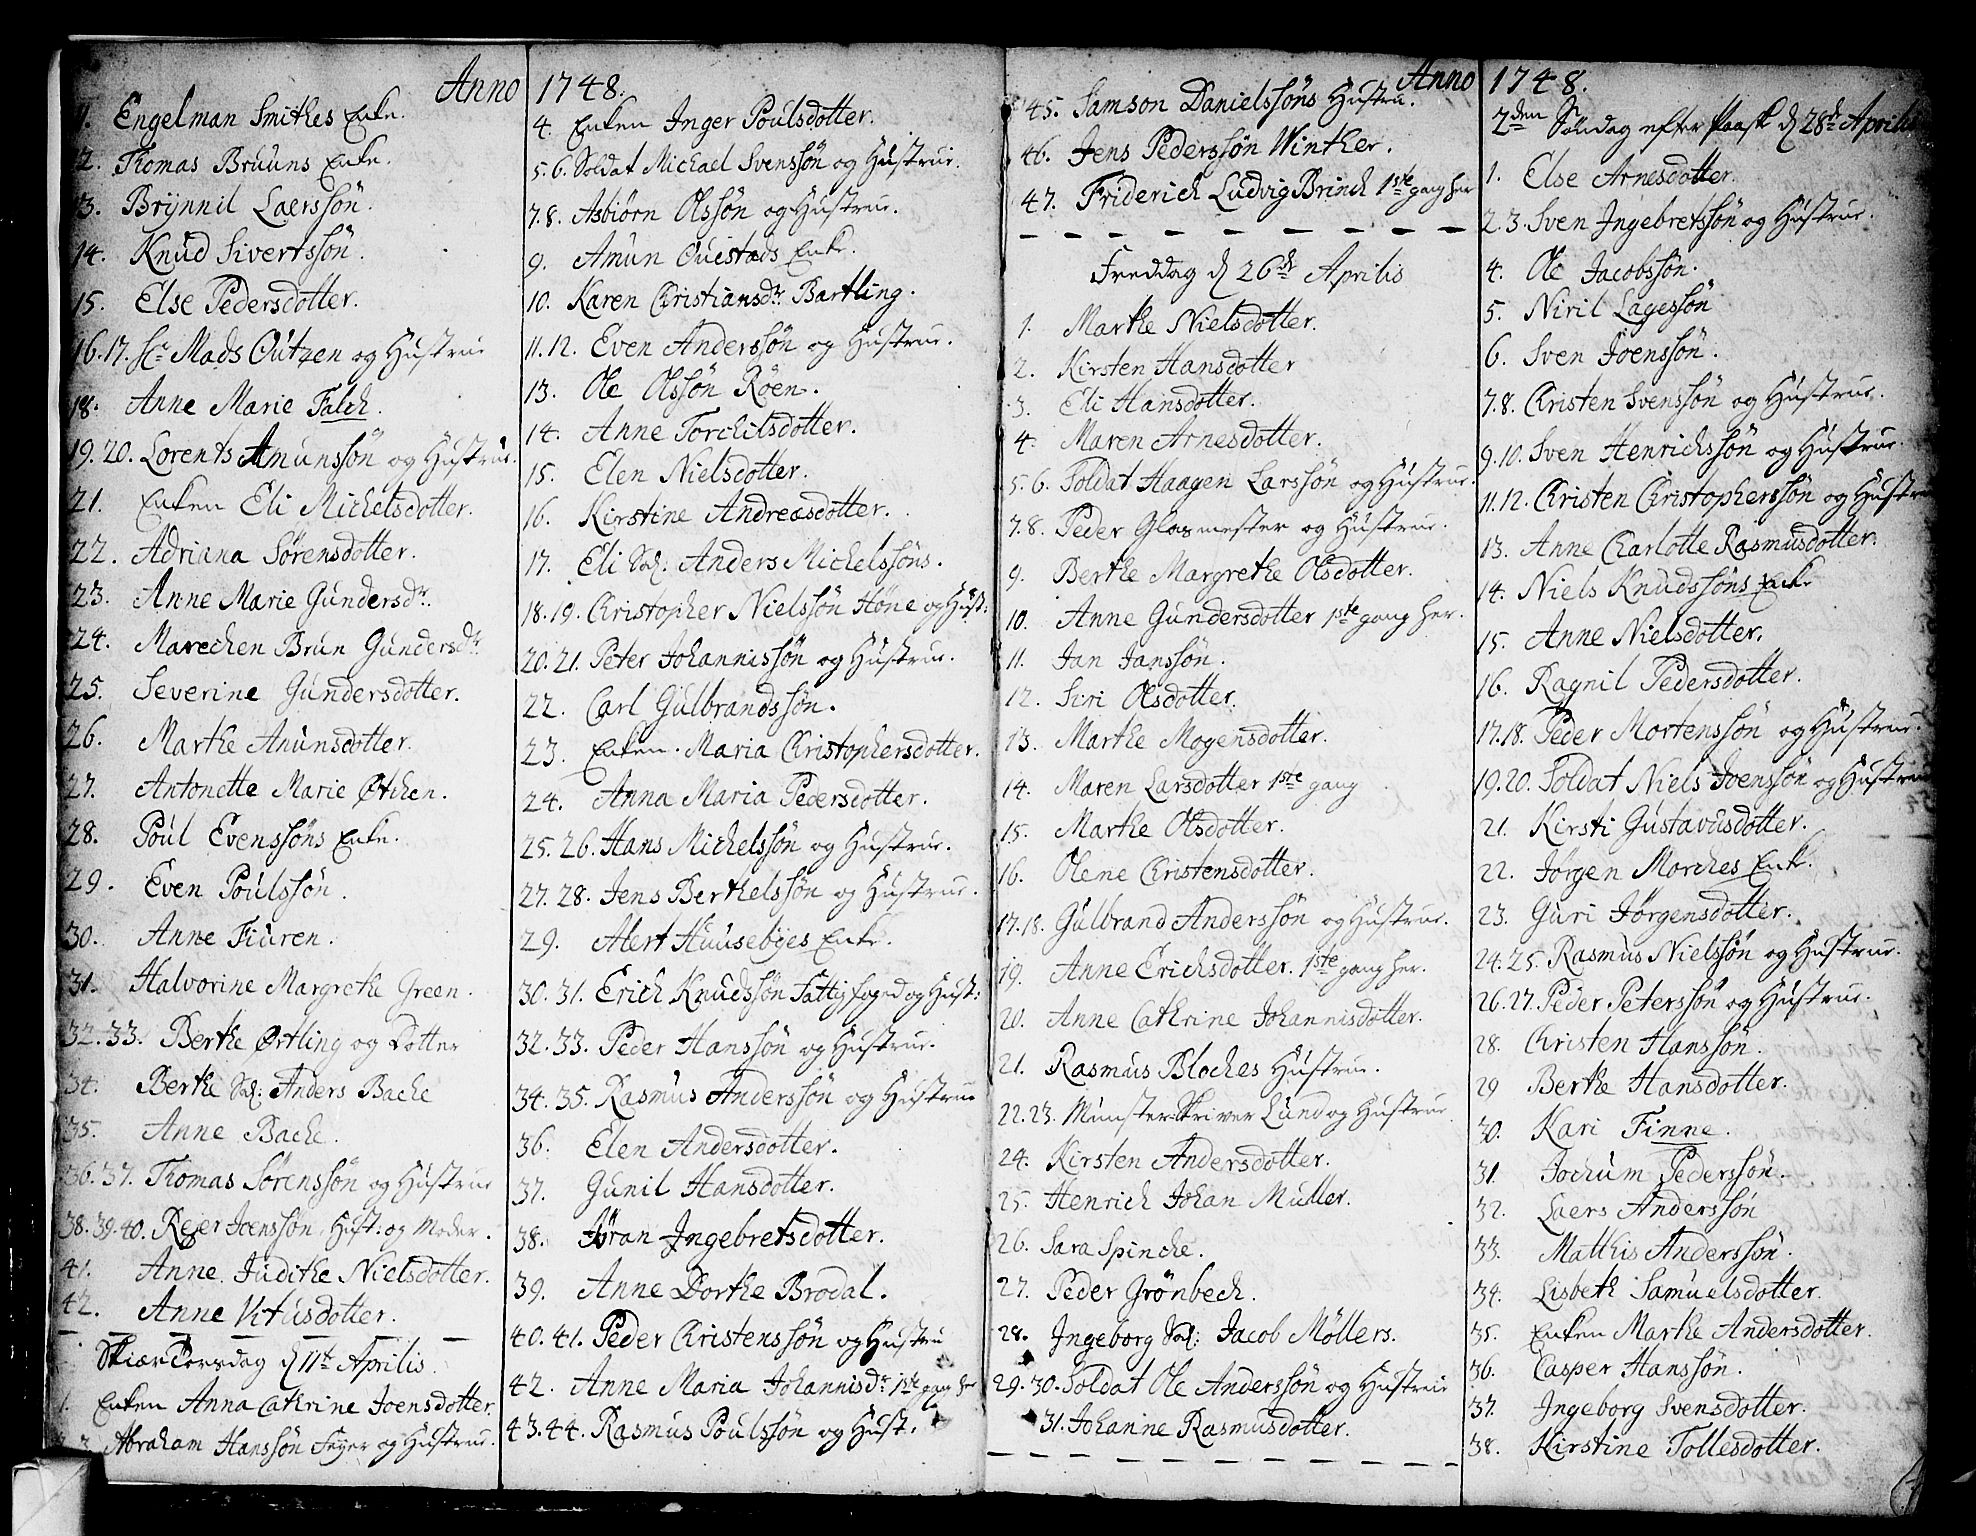 Anno 1748.
11. Engelman Smithes Enke.
12. Thomas Bruuns Enke.
13. Brÿnnil Laerssøn.
14. Knud Sivertssøn.
15. Else Pedersdotter.
16.17. Sr Mads Outzen og Hustrue
18. Anne Marie Falch.
19.20. Lorents Amunssøn og Hustrue.
21. Enken Eli Michelsdotter.
22. Adriana Sørensdotter.
23. Anne Marie Gundersdr.
24. Marechen Brun Gundersdr
25. Severine Gundersdotter.
26. Marthe Anunsdotter.
27. Antonette Marie Øthken.
28. Poul Evenssøns Enke.
29. Even Poulssøn.
30. Anne Fiuren.
31. Halvorine Margrethe Green.
32.33. Berthe Ørtling og Dotter
34. Berthe Sal: Anders Bache
35. Anne Bache.
36.37. Thomas Sørenssøn og Hustrue
38.39.40. Reier Joenssøn, Hust: og Moder.
41. Anne Judithe Nielsdotter.
42. Anne Vitusdotter.
Skiær Torsdag d 11te Aprilis
1. Enken Anna Cathrine Joensdotter.
2.3. Abraham Hanssøn Feyer og Hustrue.
4. Enken Inger Poulsdotter.
5.6. Soldat Michael Svenssøn og Hustrue.
7.8. Asbiørn Olssøn og Hustrue.
9. Amun Quistads Enke.
10. Karen Christiansdr Bartling.
11.12. Even Anderssøn og Hustrue.
13. Ole Olssøn Røen.
14. Anne Torchilsdotter.
15. Elen Nielsdotter.
16. Kirstine Andreasdotter.
17. Eli Sal: Anders Michelssøns.
18.19. Christopher Nielssøn Høne og Hust:
20.21. Peter Johannissøn og Hustrue.
22. Carl Gulbrandssøn.
23. Enken Maria Christophersdotter.
24. Anna Maria Pedersdotter.
25.26. Hans Michelssøn og Hustrue.
27.28. Jens Berthelssøn og Hustrue.
29. Alert Huusebÿes Enke.
30.31. Erich Knudssøn Fattigfoged og Hust:
32.33. Peder Hanssøn og Hustrue.
34.35. Rasmus Anderssøn og Hustrue
36. Elen Andersdotter.
37. Gunil Hansdotter.
38. Jøran Ingebretsdotter.
39. Anne Dorthe Brodal.
40.41. Peder Christenssøn og Hustru
42. Anne Maria Johannisdr 1ste gang her
43.44. Rasmus Poulssøn og Hust.
Anno 1748.
45. Samson Danielssøns Hustru.
46. Jens Pederssøn Winther.
47. Friderich Ludvig Brinch 1ste gang her
Freddag d 26de Aprilis
1. Marthe Nielsdotter.
2. Kirsten Hansdotter
3. Eli Hansdotter.
4. Maren Arnesdotter.
5.6. Soldat Haagen Larssøn og Hustrue.
7.8. Peder Glasmester og Hustrue.
9. Berthe Margrethe Olsdotter.
10. Anne Gundersdotter 1ste gang her.
11. Jan Janssøn.
12. Siri Olsdotter.
13. Marthe Mogensdotter.
14. Maren Larsdotter 1ste gang
15. Marthe Olsdotter.
16. Olene Christensdotter.
17.18. Gulbrand Anderssøn og Hustrue.
19. Anne Erichsdotter. 1ste gang her.
20. Anne Cathrine Johannisdotter.
21. Rasmus Bloches Hustrue.
22.23. Münster-Skriver Lund og Hustrue
24. Kirsten Andersdotter.
25. Henrich Johan Muller.
26. Sara Spinche.
27. Peder Grönbech.
28. Ingeborg Sal: Jacob Möllers.
29.30. Soldat Ole Anderssøn og Hustrue
31. Johanne Rasmusdotter.
2den Søndag efter Paask d 28de Aprilis
1. Else Arnesdotter.
2.3. Sven Ingebretssøn og Hustrue.
4. Ole Jacobssøn.
5. Niril Lagessøn
6. Sven Joenssøn.
7.8. Christen Svenssøn og Hustrue.
9.10. Sven Henrichssøn og Hustrue.
11.12. Christen Christopherssøn og Hustrue
13. Anne Charlotte Rasmusdotter.
14. Niels Knudssøns Enke
15. Anne Nielsdotter.
16. Ragnil Pedersdotter.
17.18. Peder Mortenssøn og Hustrue.
19.20. Soldat Niels Joenssøn og Hustrue
21. Kirsti Gustavusdotter.
22. Jørgen Morches Enke.
23. Guri Jørgensdotter.
24.25. Rasmus Nielssøn og Hustrue.
26.27. Peder Peterssøn og Hustrue.
28. Christen Hanssøn.
29 Berthe Hansdotter.
30. Kari Finne.
31. Jochum Pederssøn.
32. Laers Anderssøn
33. Matthis Anderssøn.
34. Lisbeth Samuelsdotter.
35. Enken Marthe Andersdotter.
36. Casper Hanssøn.
37. Ingeborg Svensdotter.
38. Kirstine Tollesdotter.